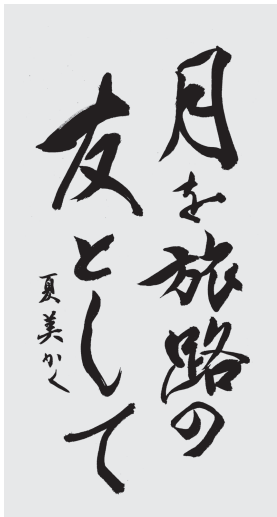 月を旅路の
友として
夏美かく